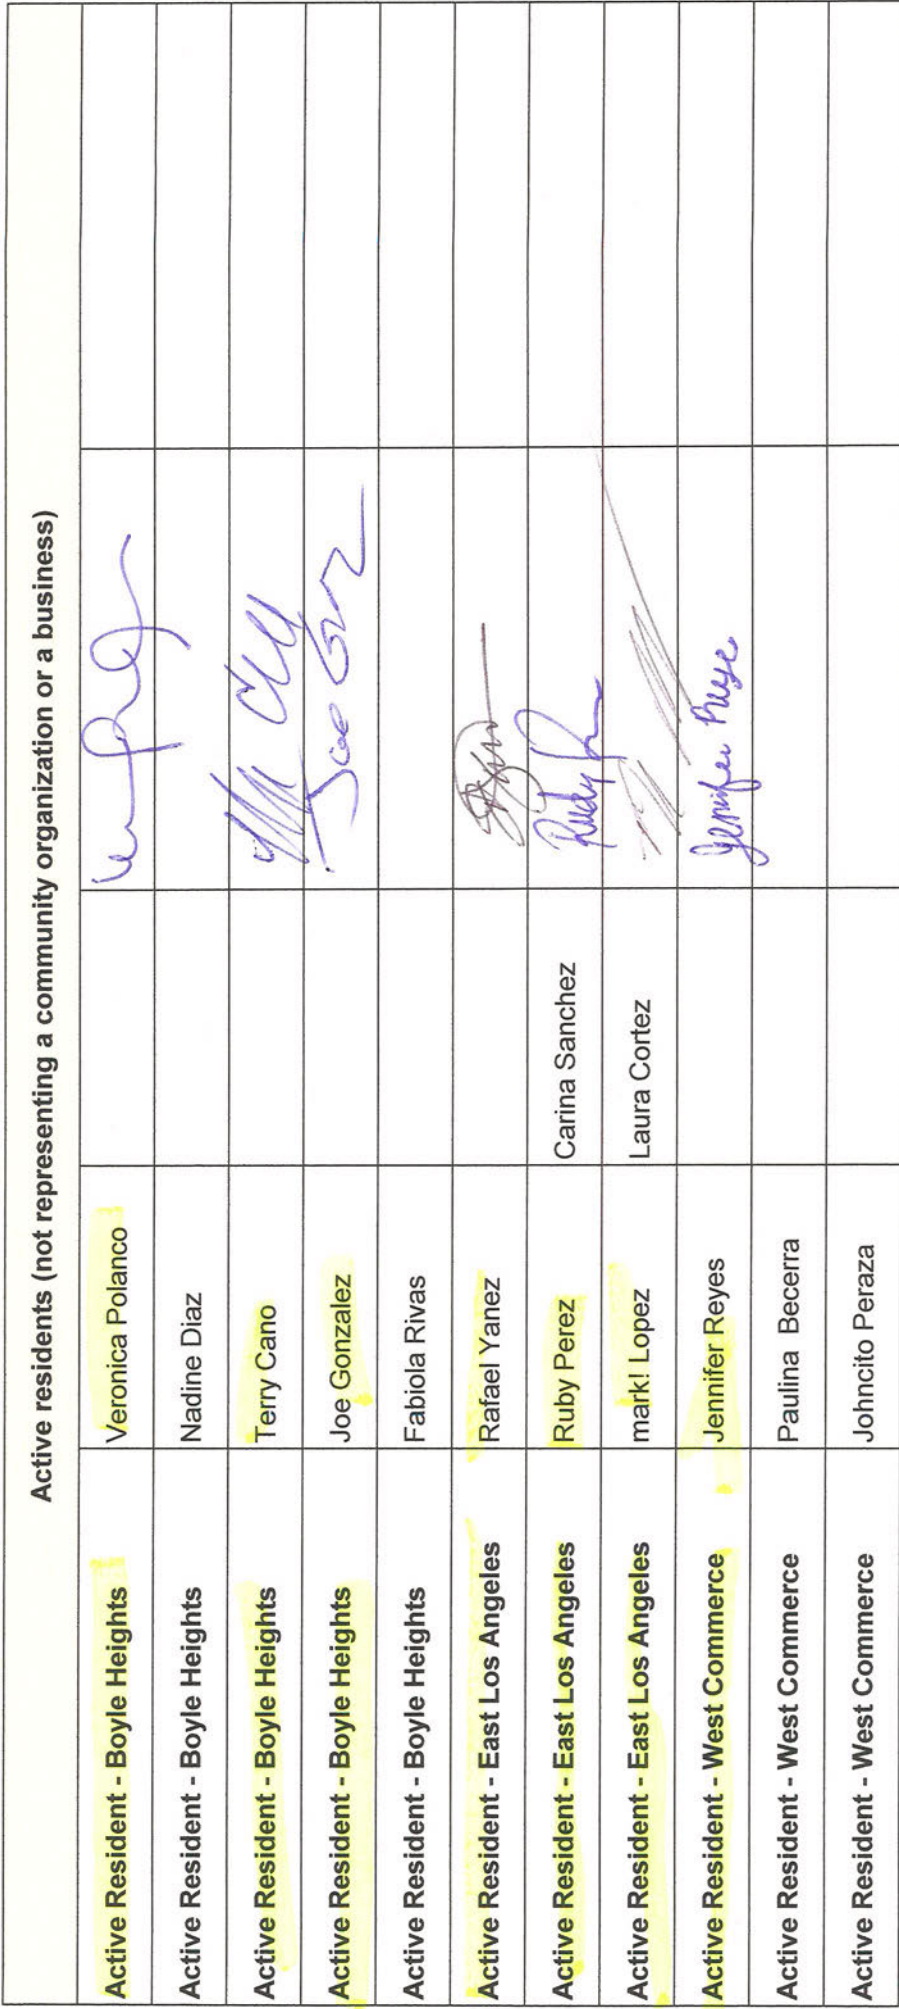 Active residents (not representing a community organization or a business)
Active Resident - Boyle Heights Veronica Polanco
Active Resident - Boyle Heights Nadine Diaz
Active Resident - Boyle Heights Terry Cano
Active Resident - Boyle Heights Joe Gonzalez Joe
Active Resident - Boyle Heights Fabiola Rivas
Active Resident - East Los Angeles Rafael Yanez
Active Resident - East Los Angeles Ruby Perez Carina Sanchez
Active Resident - East Los Angeles mark! Lopez Laura Cortez
Active Resident - West Commerce Jennifer Reyes Jennifer
Active Resident - West Commerce Paulina Becerra
Active Resident - West Commerce Johncito Peraza